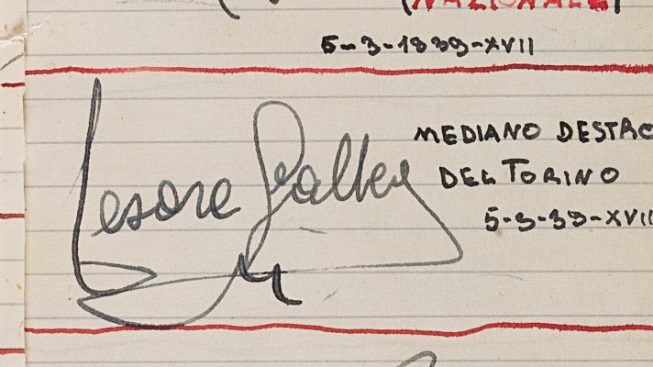 (NAZIONALE)
5-3-1939-XVII
Cesare Gallea
MEDIANO DESTRO
DEL TORINO
5-3-39-XVII